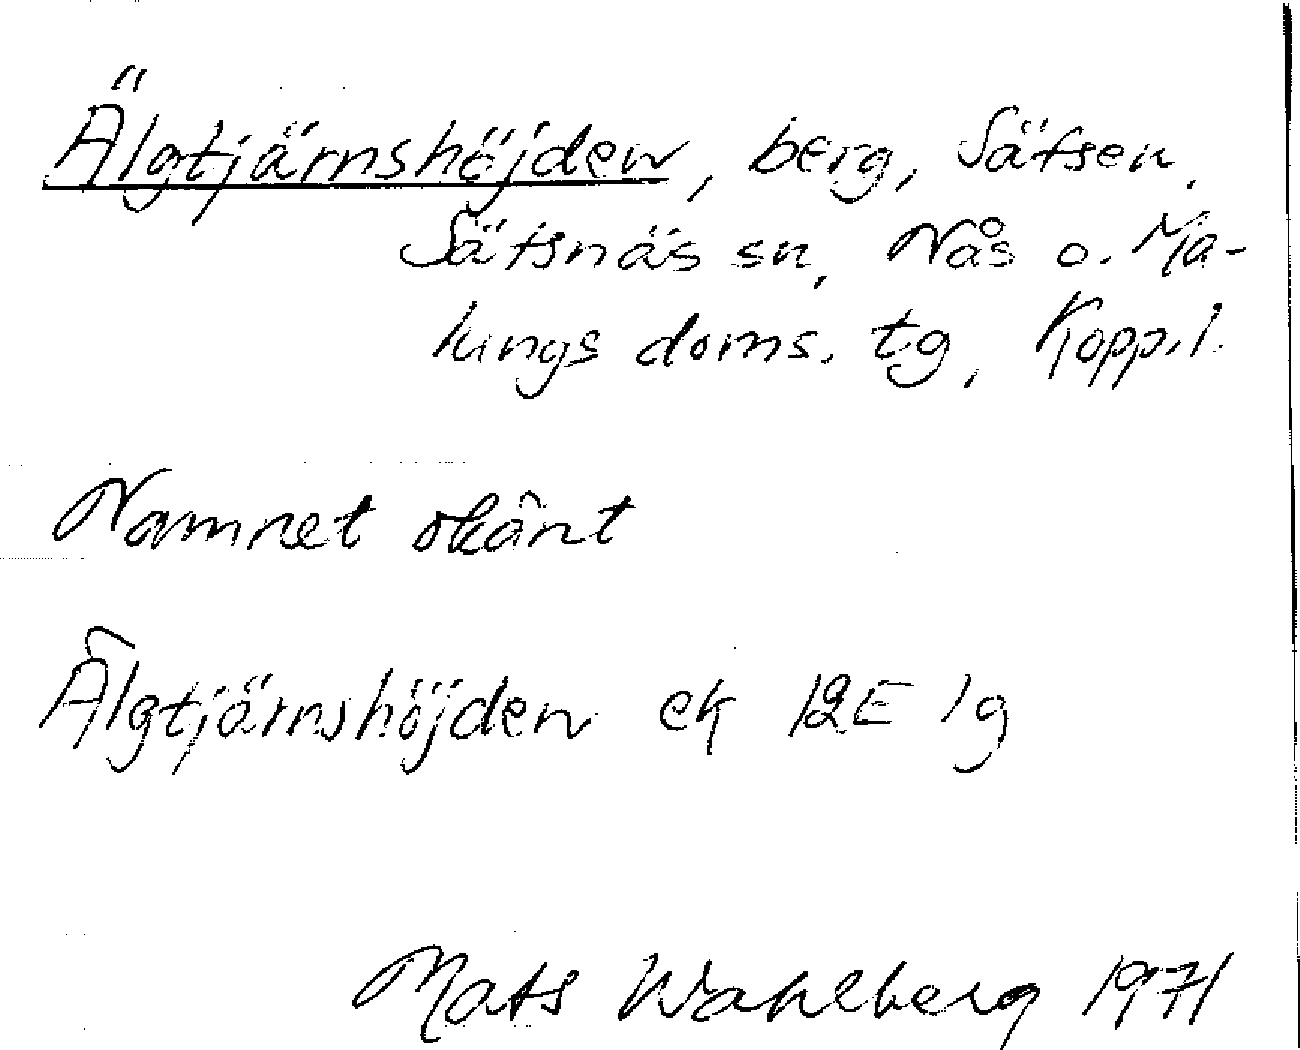 Älgtjärnshöjden, berg, Sätsen,
Sätsnäs sn, Nås o. Ma-
lungs doms. tg, Kopp.l.
Namnet okänt
Älgtjärnshöjden ek 12E 1g
Mats Wahlberg 1971